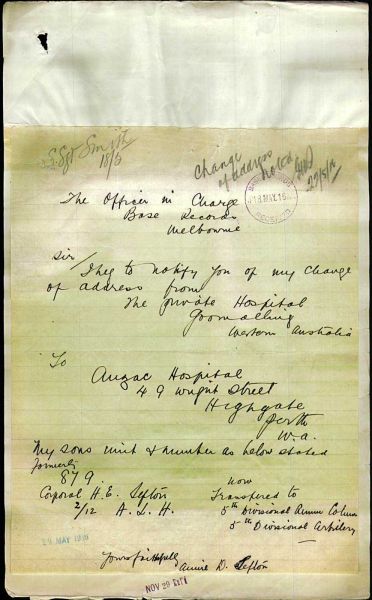 S. Sgt Smith
18/5
Change
of address
noted
29/5/16
18 MAY 16
The Officer in Charge
Base Records
Melbourne
Sir/
I beg to notify you of my change
of address from
The private Hospital
Goomalling
Western Australia
To
Anzac Hospital
49 wright Street
Highgate
Perth
W.A.
My sons unit & number as below stated
formerly
879
Corporal H.E. Sefton
2/12 A. L. H.
now
Transferred to
5th Divisional Ammn Column
5th Divisional Artillery
29 MAY 1916
Yours faithfully
Annie D. Sefton
NOV 29 1911